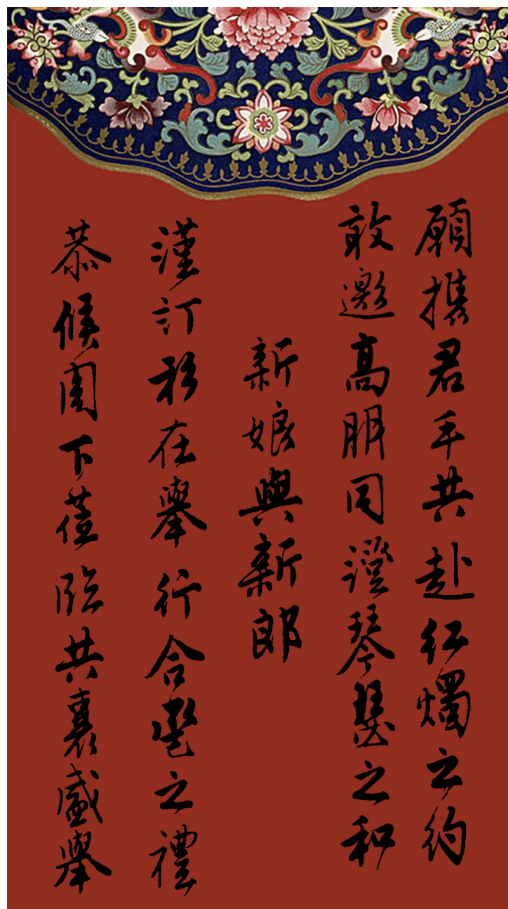 願攜君手共赴紅燭之約
敢邀高朋同證琴瑟之和
新娘與新郎
謹訂於在舉行合卺之禮
恭候閣下蒞臨共襄盛舉